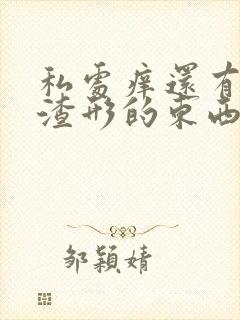 私處痒還有
渣形的東西
邹穎婧